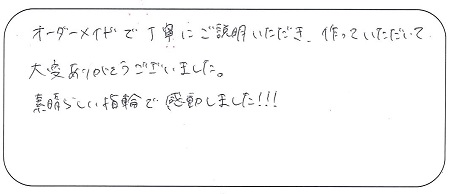 オーダーメイドで丁寧にご説明いただき、作っていただいて
大変ありがとうございました。
素晴らしい指輪で感動しました!!!